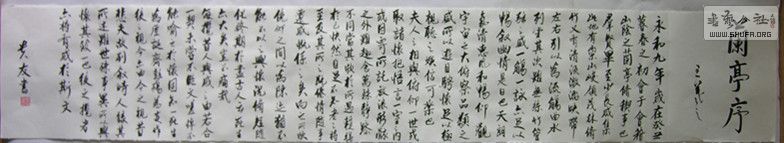 蘭亭序
王羲之
永和九年歲在癸丑
暮春之初會于會稽
山陰之蘭亭脩稧事也
群賢畢至少長咸集
此地有崇山峻領茂林脩
竹又有清流激湍映帶
左右引以為流觴曲水
列坐其次雖無絲竹管
弦之盛一觴一詠亦足以
暢敘幽情是日也天朗
氣清惠風和暢仰觀
宇宙之大俯察品類之
盛所以遊目騁懷足以極
視聽之娛信可樂也
夫人之相與俯仰一世或
取諸懷抱悟言一室之內
或因寄所託放浪形骸
之外雖趣舍萬殊靜躁
不同當其欣於所遇暫得
於己快然自足不知老之將
至及其所之既惓情隨事
遷感慨係之矣向之所欣
俛仰之間以為陳迹猶不
能不以之興懷況脩短隨
化終期於盡古人云死生
亦大矣豈不痛哉
每攬昔人興感之由若合
一契未嘗不臨文嗟悼不
能喻之於懷固知一死生
為虛誕齊彭殤為妄作
後之視今亦由今之視昔
悲夫故列敘時人錄其
所述雖世殊事異所以興
懷其致一也後之攬者
亦將有感於斯文
友書
书艺公社
WWW.SHUFA.ORG